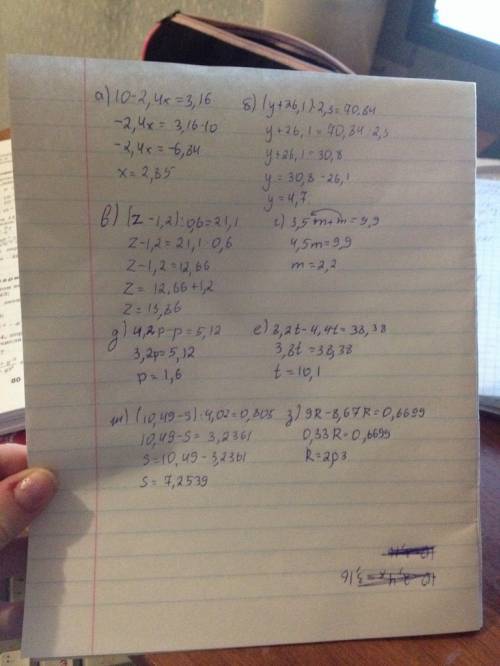 а) 10-2,4x=3,16
-2,4x = 3,16-10
-2,4x = -6,84
x = 2,85
б) (y+26,1)·2,3=70,84
y+26,1=70,84:2,3
y+26,1=30,8
y = 30,8-26,1
y = 4,7
в) (z-1,2):0,6=21,1
z-1,2=21,1·0,6
z-1,2=12,66
z = 12,66+1,2
z = 13,86
г) 3,5m+m=9,9
4,5m=9,9
m=2,2
д) 4,2p-p=5,12
3,2p=5,12
p = 1,6
е) 8,2t-4,4t=38,38
3,8t=38,38
t=10,1
ж) (10,49-s):4,02=0,805
10,49-s = 3,2361
s=10,49-3,2361
s = 7,2539
з) 9R-8,67R=0,6699
0,33R=0,6699
R=2,03
10-2,4x=3,16